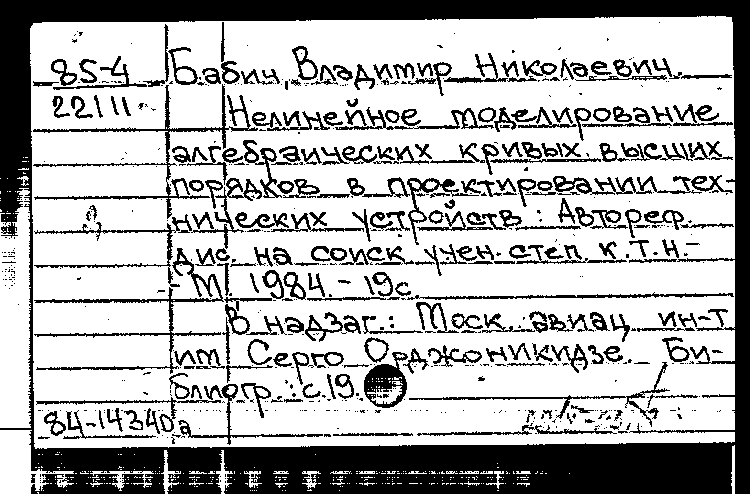 85-4 Бабич, Владимир Николаевич.
22111 Нелинейное моделирование
алгебраических кривых высших
порядков в проектировании тех-
нических устройств : Автореф.
дис. на соиск учен. степ. к.т.н.-
- М. 1984. - 19с.
В надзаг.: Моск. авиац. ин-т
им Серго Орджоникидзе. Би-
блиогр.: с.19.
84-14340а